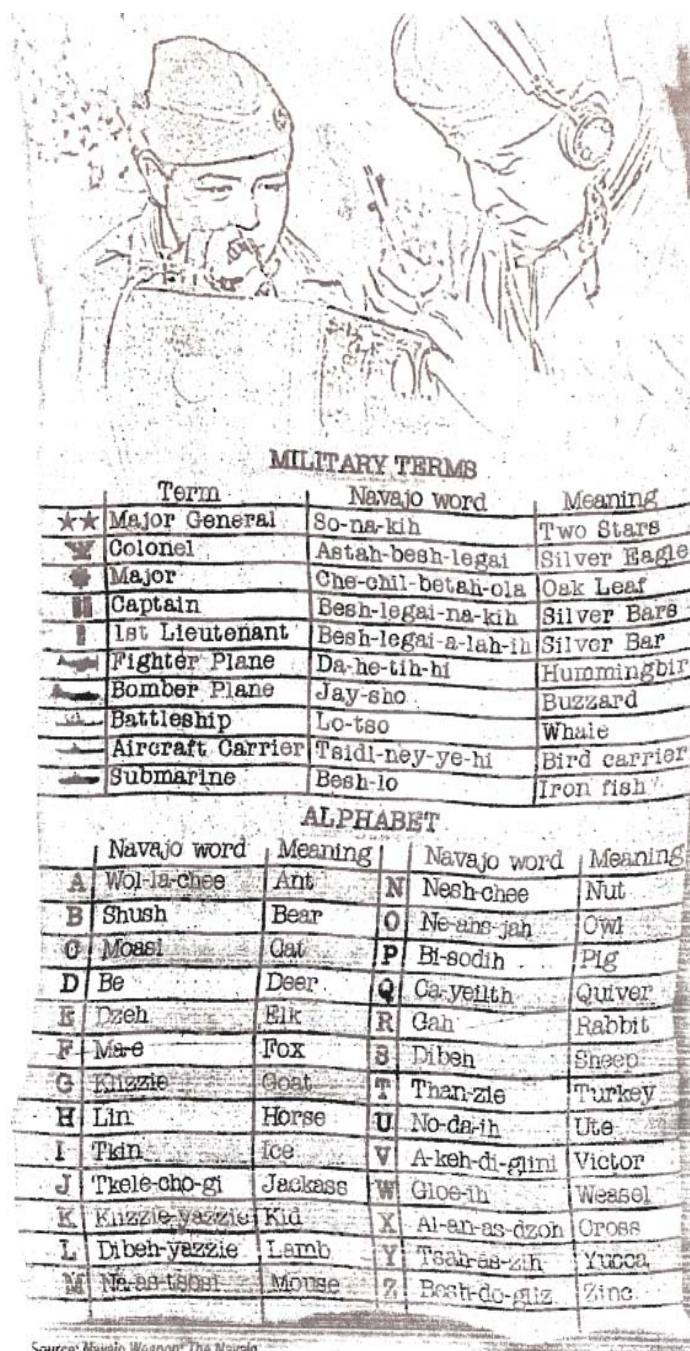 MILITARY TERMS
Term Navajo word Meaning
Major General So-na-kih Two Stars
Colonel Astah-besh-legai Silver Eagle
Major Che-chil-betah-ola Oak Leaf
Captain Besh-legai-na-kih Silver Bars
1st Lieutenant Besh-legai-a-lah-ih Silver Bar
Fighter Plane Da-he-tih-hi Hummingbir
Bomber Plane Jay-sho Buzzard
Battleship Lo-tso Whale
Aircraft Carrier Tsidi-ney-ye-hi Bird carrier
Submarine Besh-lo Iron fish
ALPHABET
Navajo word Meaning Navajo word Meaning
A Wol-la-chee Ant N Nesh-chee Nut
B Shush Bear O Ne-ahs-jah Owl
C Moasi Cat P Bi-sodih Pig
D Be Deer Q Ca-yeilth Quiver
E Dzeh Elk R Gah Rabbit
F Ma-e Fox S Dibeh Sheep
G Klizzie Goat T Than-zie Turkey
H Lin Horse U No-da-ih Ute
I Tkin Ice V A-keh-di-glini Victor
J Tkele-cho-gi Jackass W Gloe-ih Weasel
K Klizzie-yazzie Kid X Al-an-as-dzoh Cross
L Dibeh-yazzie Lamb Y Tsah-as-zih Yucca
M Na-as-tsosi Mouse Z Besh-do-gliz Zinc
Source: Navajo Weapon: The Navajo